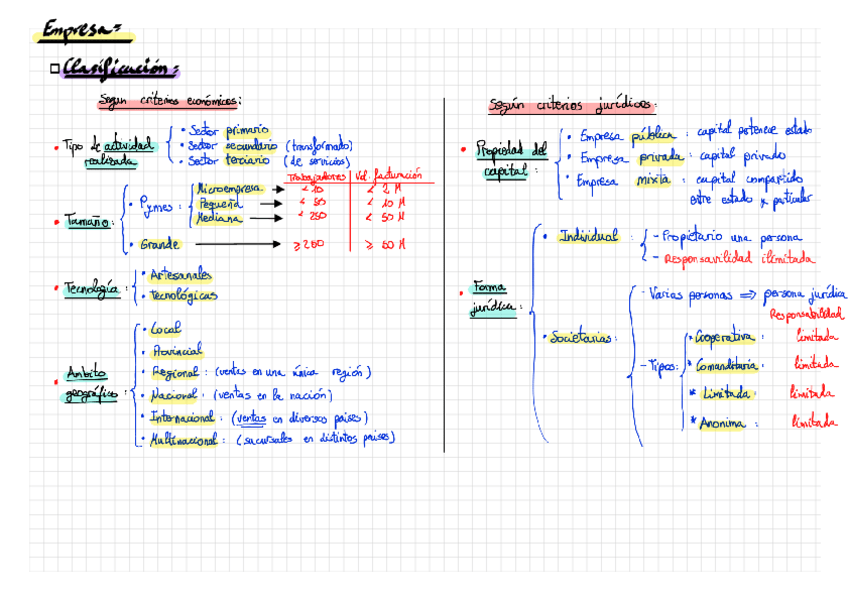 Empresa:
Clasificación:
Según criterios económicos:
• Tipo de actividad realizada
• Sector primario
• Sector secundario (transformado)
• Sector terciario (de servicios)
Trabajadores | Vol. facturación
• Tamaño:
• Pymes:
Microempresa → < 10 < 2 M
Pequeña → < 50 < 10 M
Mediana → < 250 < 50 M
• Grande → ≥ 250 ≥ 50 M
• Tecnología:
• Artesanales
• Tecnológicas
• Ambito geográfico:
• Local
• Provincial
• Regional: (ventas en una única región)
• Nacional: (ventas en la nación)
• Internacional: (ventas en diversos paises)
• Multinacional: (sucursales en distintos paises)
Según criterios jurídicos:
• Propiedad del capital:
• Empresa pública: capital pertenece estado
• Empresa privada: capital privado
• Empresa mixta: capital compartido
entre estado y particular
• Forma jurídica:
• Individual:
- Propietario una persona
- Responsavilidad ilimitada
• Societarias:
- Varias personas ⇒ persona jurídica
Responsabilidad
- Tipos:
* Cooperativa: limitada
* Comanditaria: limitada
* Limitada: limitada
* Anonima: limitada